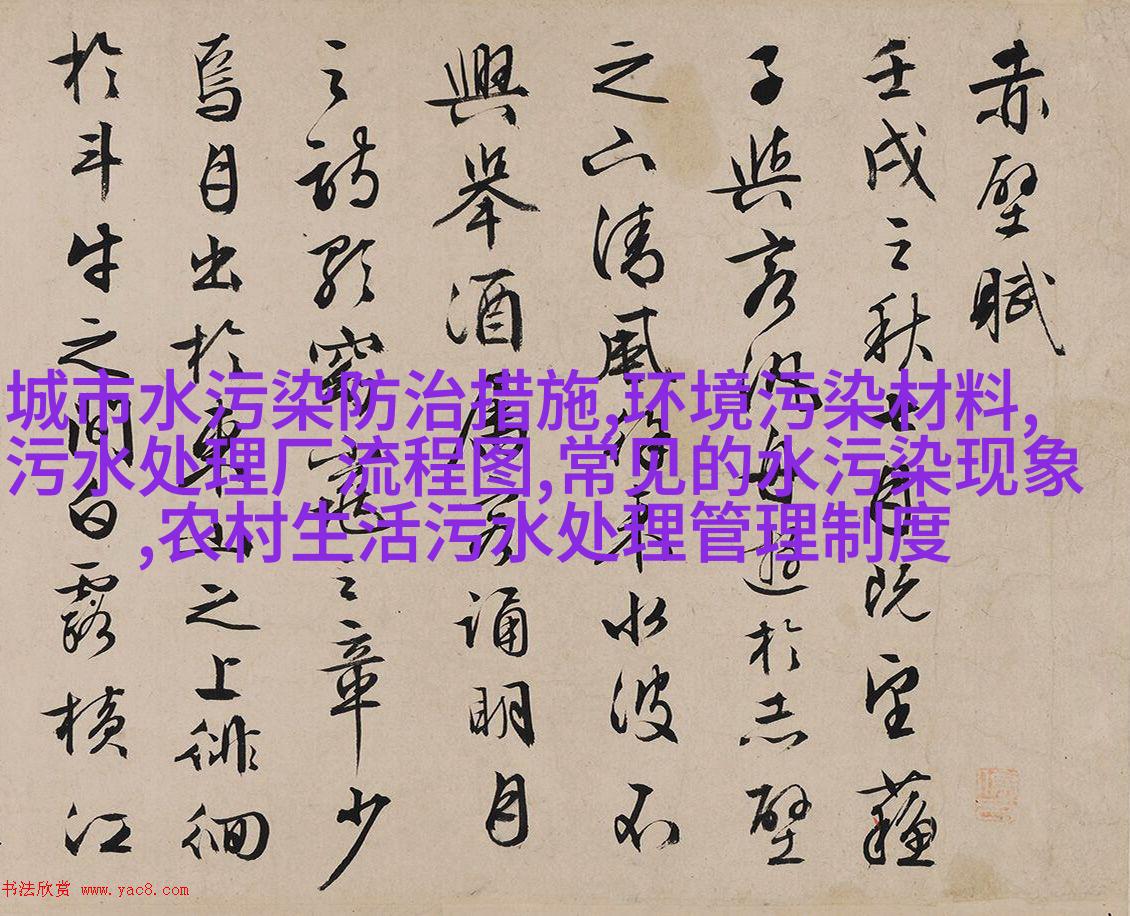 赤壁賦
壬戌之秋七月既望蘇
子與客泛舟遊於赤壁
之下清風徐來水波不
興舉酒屬客誦明月
之詩歌窈窕之章少
焉月出於東山之上徘徊
於斗牛之間白露橫江
城市水污染防治措施,环境污染材料,
污水处理厂流程图,常见的水污染现象
,农村生活污水处理管理制度
书法欣赏 www.yac8.com